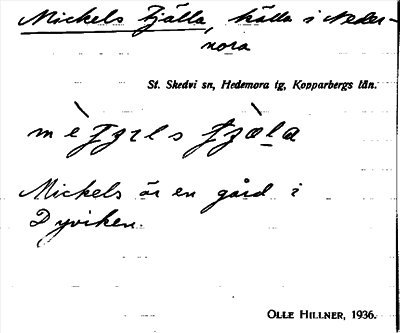 Mickels Fjälla, källa i Neder-
nora
St. Skedvi sn, Hedemora tg, Kopparbergs län.
Mickels är en gård i
Dyviken.
OLLE HILLNER, 1936.